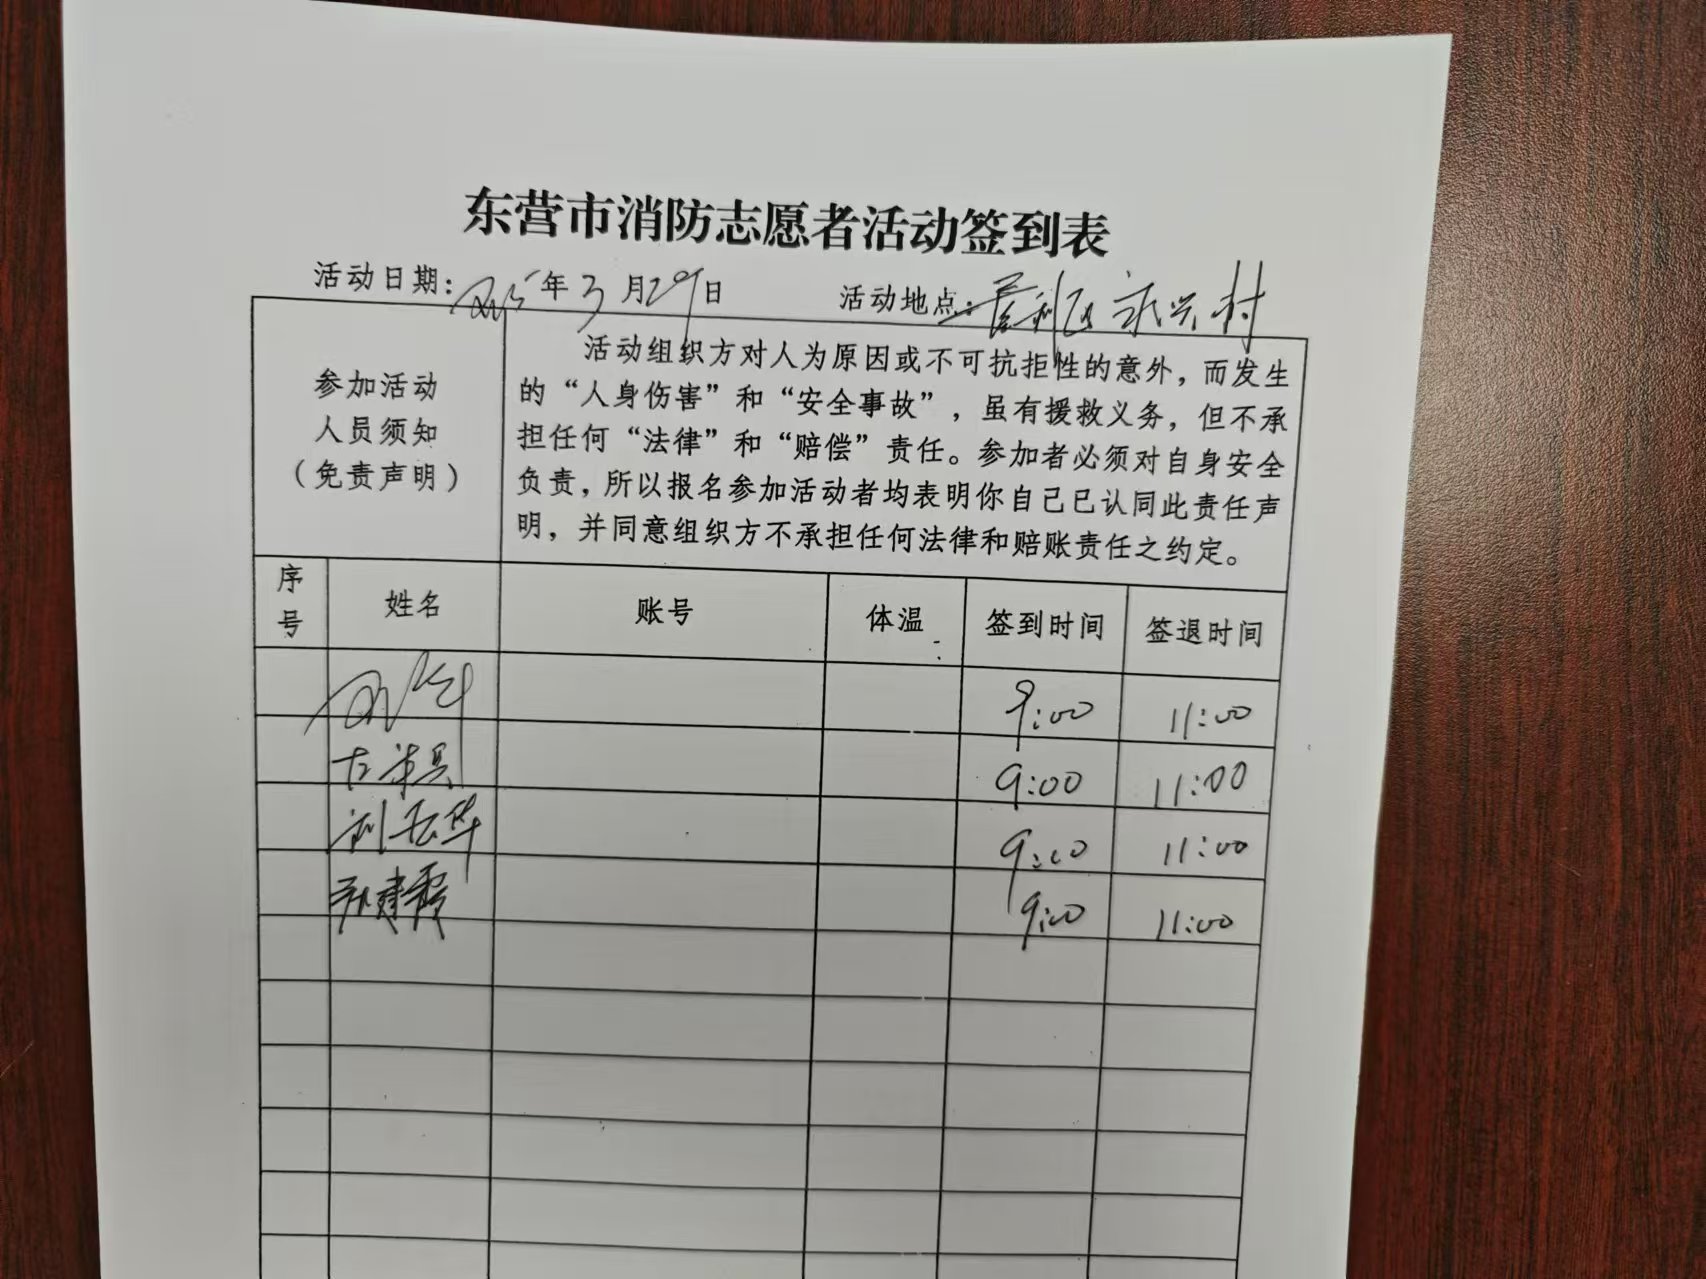 东营市消防志愿者活动签到表
活动日期：2025年3月29日 活动地点：垦利区永兴村
参加活动
人员须知
（免责声明）
活动组织方对人为原因或不可抗拒性的意外，而发生
的“人身伤害”和“安全事故”，虽有援救义务，但不承
担任何“法律”和“赔偿”责任。参加者必须对自身安全
负责，所以报名参加活动者均表明你自己已认同此责任声
明，并同意组织方不承担任何法律和赔账责任之约定。
序号 姓名 账号 体温 签到时间 签退时间
9:00 11:00
9:00 11:00
刘云华 9:00 11:00
孙建霞 9:00 11:00